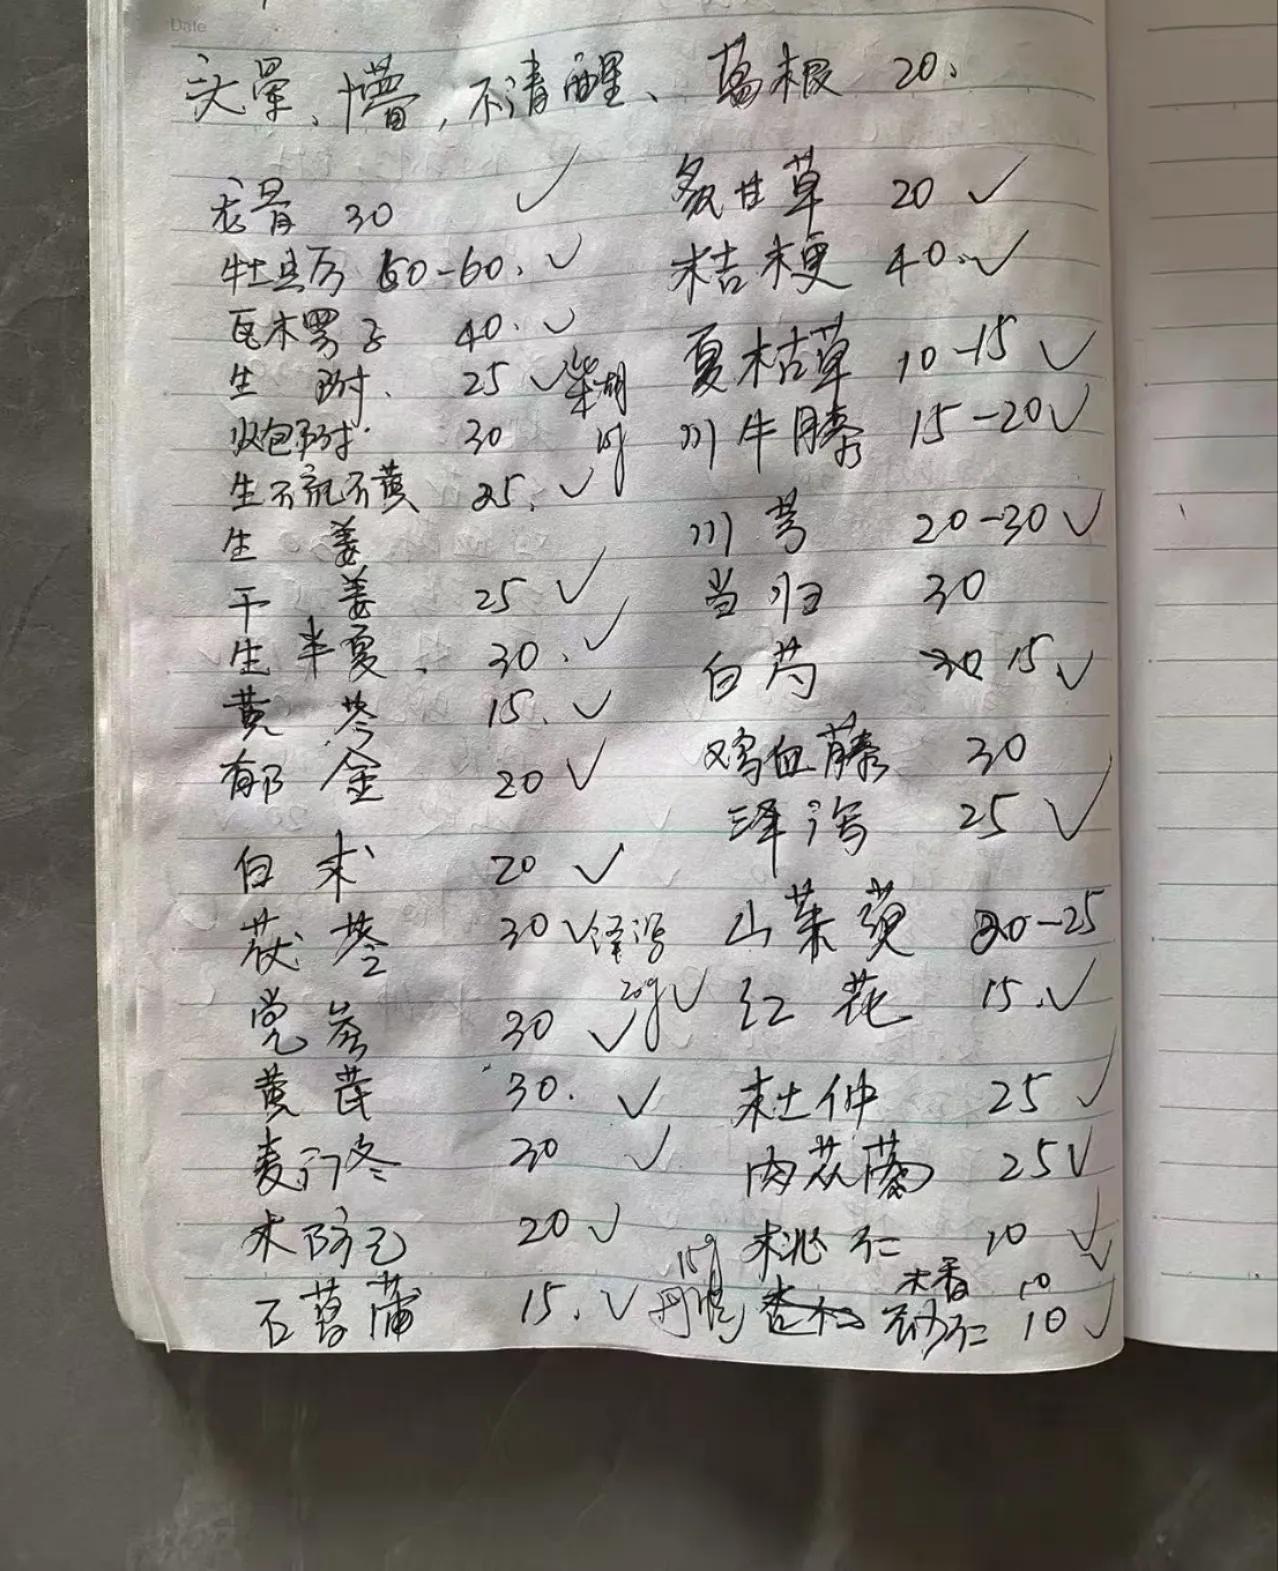 Date
头晕、懵,不清醒、葛根 20.
龙骨 30 ✓
牡蛎 50-60. ✓
瓦楞子 40. ✓
生附. 25 ✓
柴胡
10g
炮附. 30
生大黄 25. ✓
生姜
干姜 25 ✓
生半夏. 30. ✓
黄芩 15. ✓
郁金 20 ✓
白术 20 ✓
茯苓 30 ✓
泽泻
20g ✓
党参 30 ✓
黄芪 30. ✓
麦门冬 30 ✓
木防己 20 ✓
石菖蒲 15. ✓
炙甘草 20 ✓
桔梗 40. ✓
夏枯草 10-15 ✓
川牛膝 15-20 ✓
川芎 20-30 ✓
当归 30
白芍 15 ✓
鸡血藤 30
泽泻 25 ✓
山茱萸 20-25
红花 15. ✓
杜仲 25 ✓
肉苁蓉 25 ✓
桃仁 10 ✓
15g
木香 10 ✓
砂仁 10 ✓